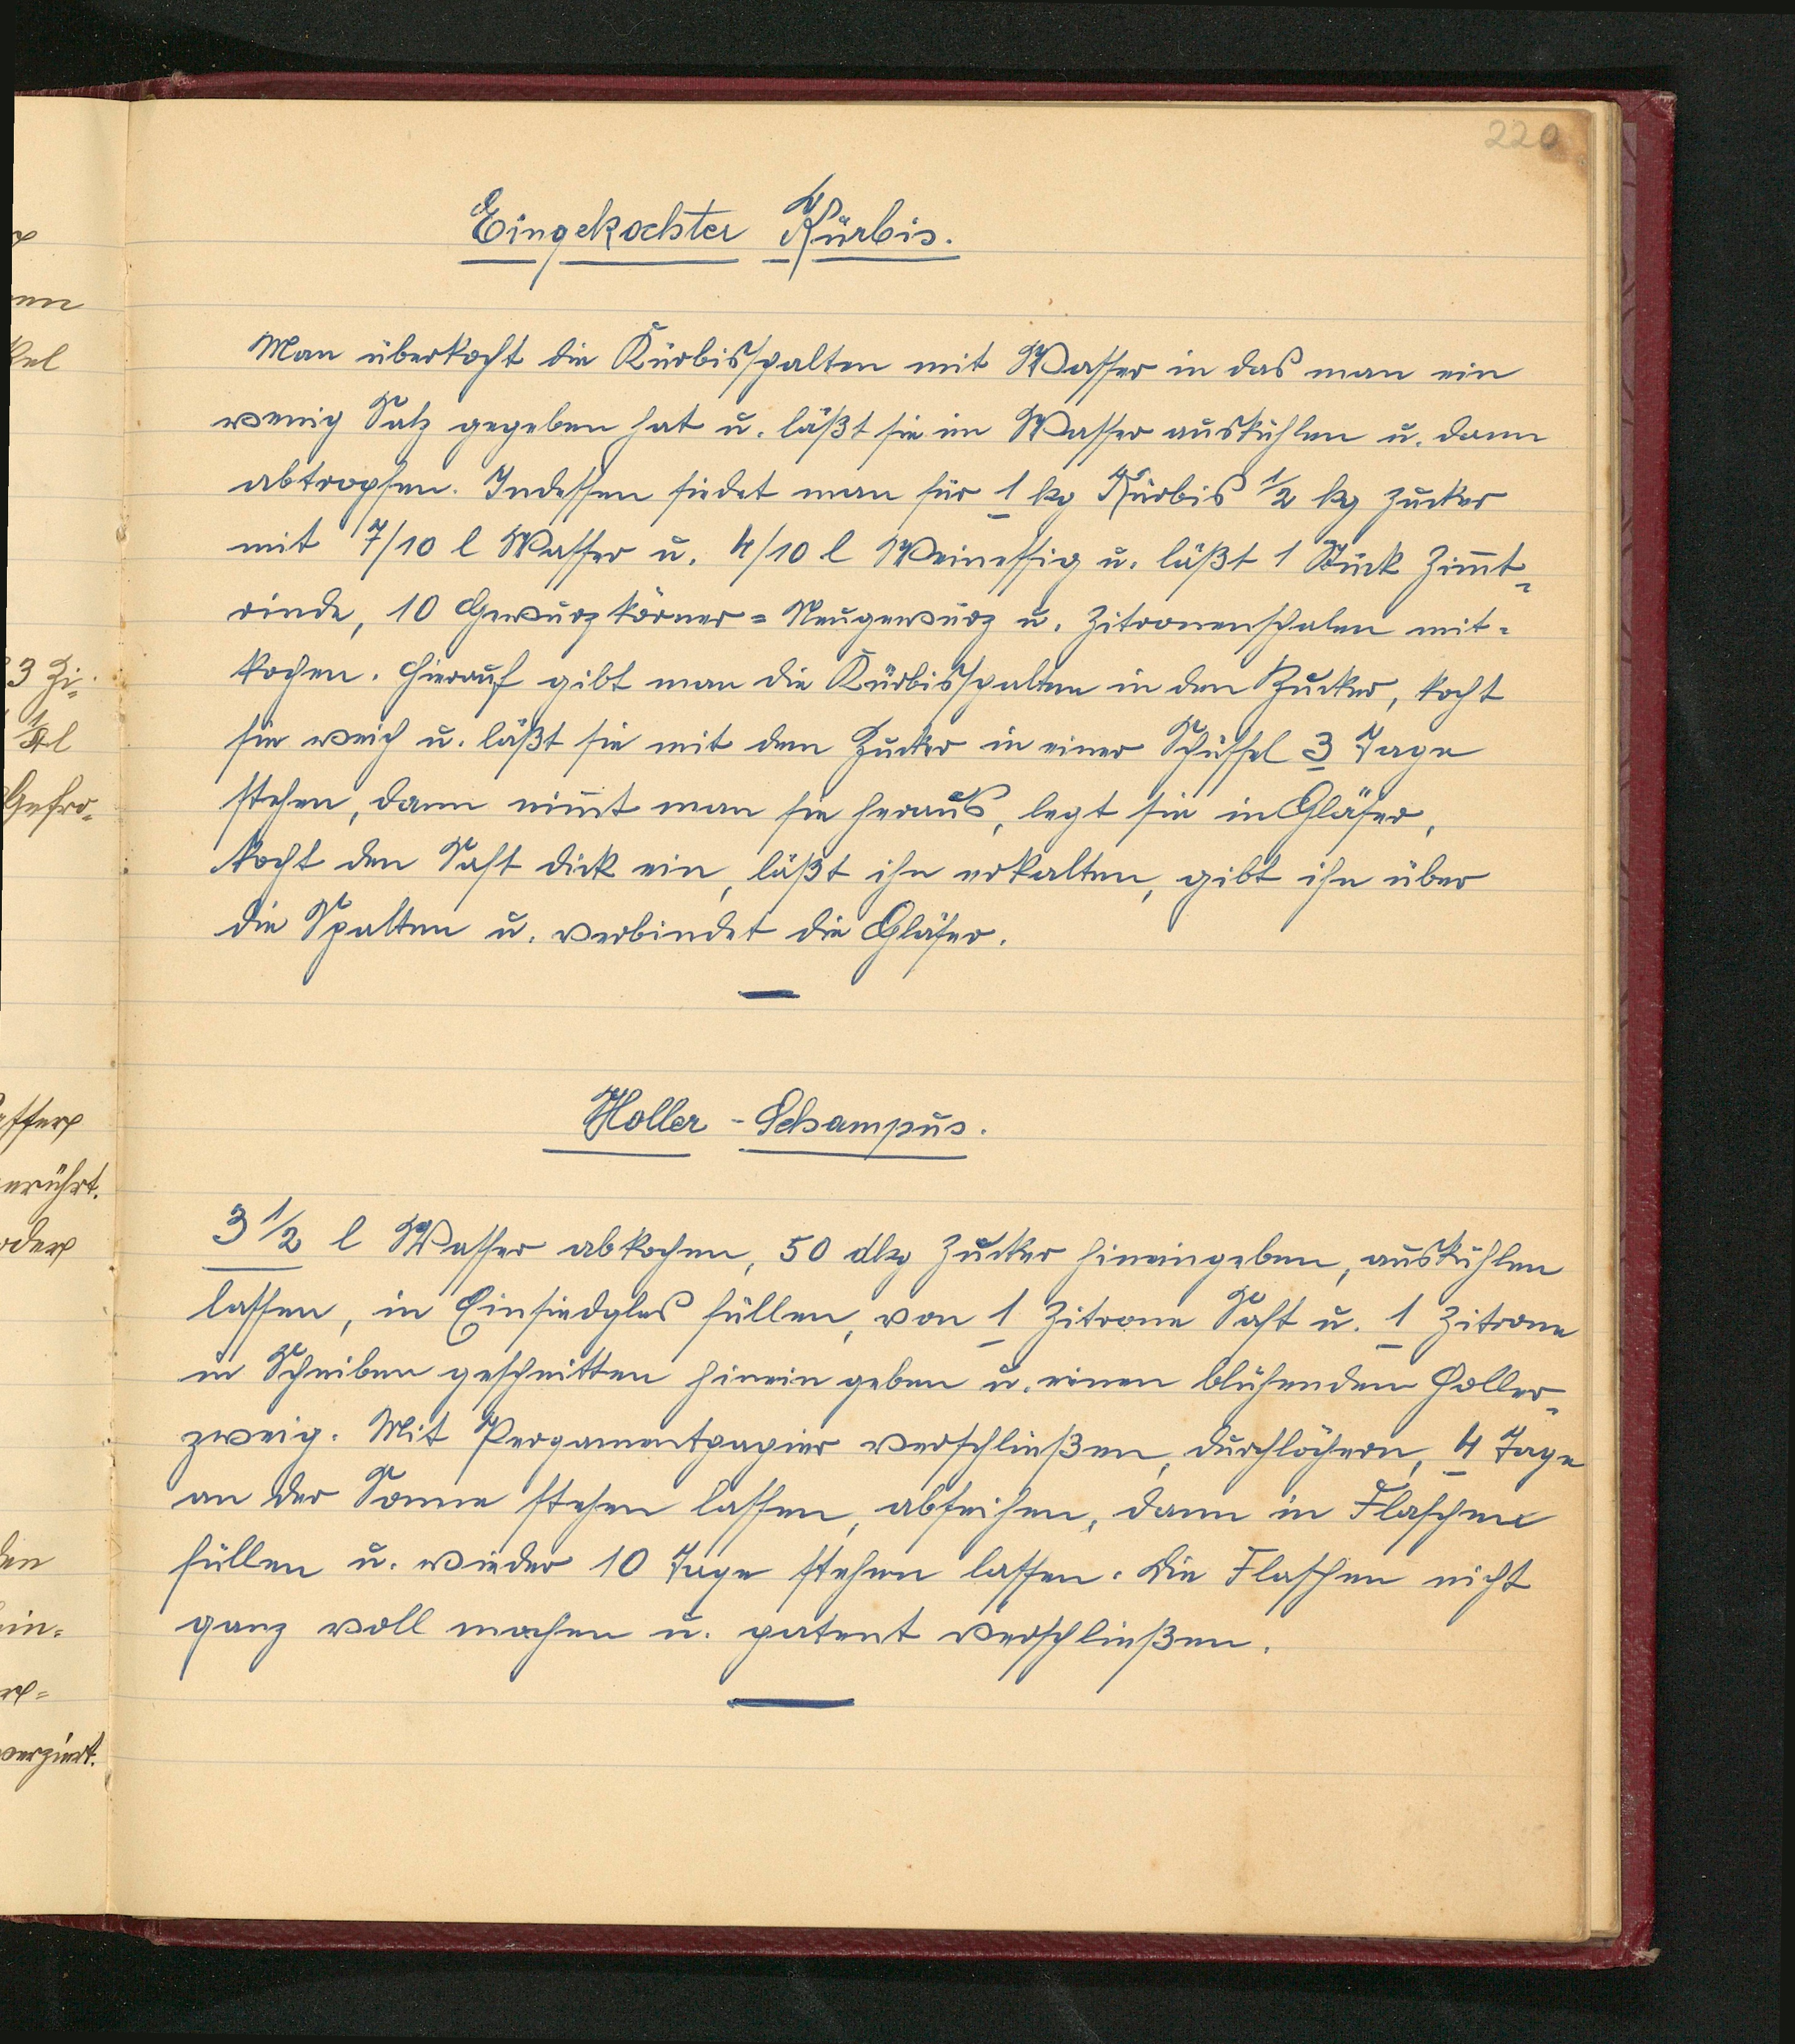 220
Eingekochter Kürbis.
Man überkocht die Kürbisspalten mit Wasser in das man ein
wenig Salz gegeben hat u. läßt sie im Wasser auskühlen u. dann
abtropfen. Indessen siedet man für 1 kg Kürbis 1/2 kg Zucker
mit 7/10 l Wasser u. 4/10 l Weinessig u. läßt 1 Stück Zim̅t-
rinde, 10 Gewürzkörner = Neugewürz u. Zitronenschalen mit-
kochen. Hierauf gibt man die Kürbisspalten in den Zucker, kocht
sie weich u. läßt sie mit dem Zucker in einer Schüssel 3 Tage
stehen, dann nim̅t man sie heraus, legt sie in Gläser,
kocht den Saft dick ein, läßt ihn erkalten, gibt ihn über
die Spalten u. verbindet die Gläser.
Holler-Schampus.
3 1/2 l Wasser abkochen, 50 dkg Zucker hineingeben, auskühlen
lassen, in Einsiedglas füllen, von 1 Zitrone Saft u. 1 Zitrone
in Scheiben geschnitten hinein geben u. einen blühenden Holler-
zweig. Mit Pergamentpapier verschließen, durchlöchern, 4 Tage
an der Sonne stehen lassen, abseihen, dann in Flaschen
füllen u. wieder 10 Tage stehen lassen. Die Flaschen nicht
ganz voll machen u. patent verschließen.